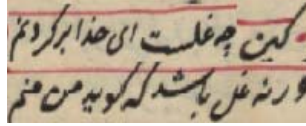 کین چه غلست ای خدا بر گردنم
ورنه غل باشد که گوید من منم